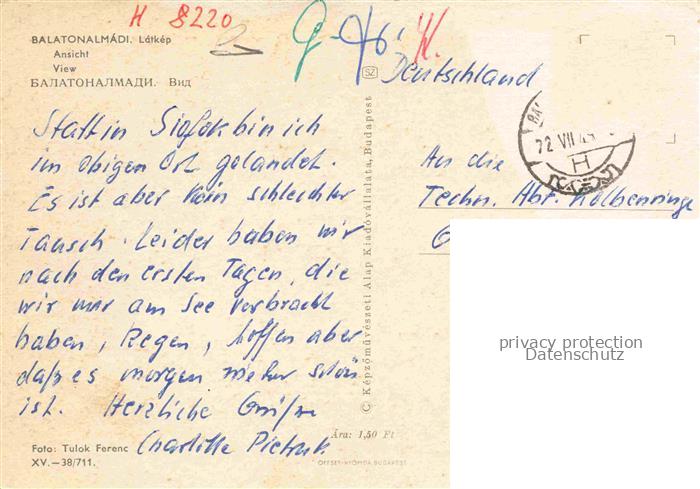 H 8220
BALATONALMÁDI. Látkép
Ansicht
View
БАЛАТОНАЛМАДИ. Вид
Statt in Siofok bin ich
im obigen Ort gelandet.
Es ist aber kein schlechter
Tausch. Leider haben wir
nach den ersten Tagen, die
wir nur am See verbracht
haben, Regen, hoffen aber
daß es morgen wieder schön
ist. Herzliche Grüße
Charlotte
Foto: Tulok Ferenc
XV.—38/711.
Ára: 1,50 Ft
OFFSET-NYOMDA BUDAPEST
© Képzőművészeti Alap Kiadóvállalata, Budapest
SZ
Deutschland
72 VII
H
An die
Techn. Abt. Kolbenringe
privacy protection
Datenschutz